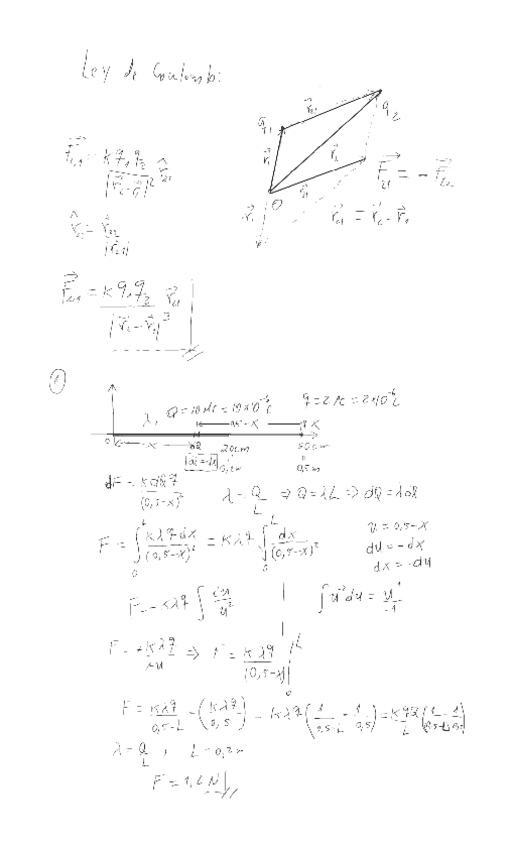 Ley de Coulomb:
q₁
q₂
O
F⃗₂₁ = K q₁ q₂ / |r⃗₂ - r⃗₁|² r̂₂₁
F⃗₂₁ = - F⃗₁₂
r̂₂₁ = r⃗₂₁ / |r⃗₂₁|
r⃗₂₁ = r⃗₂ - r⃗₁
F⃗₂₁ = K q₁ q₂ / |r⃗₂ - r⃗₁|³ r⃗₂₁
①
λ, Q = 10 μc = 10 x 10⁻⁶ C
q = 2 μc = 2x10⁻⁶ C
0,5 - X
X
0
X
dQ
20cm
50cm
dl = dx
0,2m
0,5m
dF = K dQ q / (0,5-x)²
λ = Q / L ⇒ Q = λL ⇒ dQ = λdl
F = ∫₀ᴸ Kλq dx / (0,5-x)² = Kλq ∫₀ᴸ dx / (0,5-x)²
u = 0,5-x
du = -dx
dx = -du
F = -Kλq ∫ du / u²
∫ u⁻² du = u⁻¹ / -1
F = +Kλq / u ⇒ F = Kλq / (0,5-x) |₀ᴸ
F = Kλq / (0,5-L) - (Kλq / 0,5) = Kλq (1 / (0,5-L) - 1 / 0,5) = K qQ / L (1 / (0,5-L) - 1 / 0,5)
λ = Q / L , L = 0,2m
F = 1,2 N